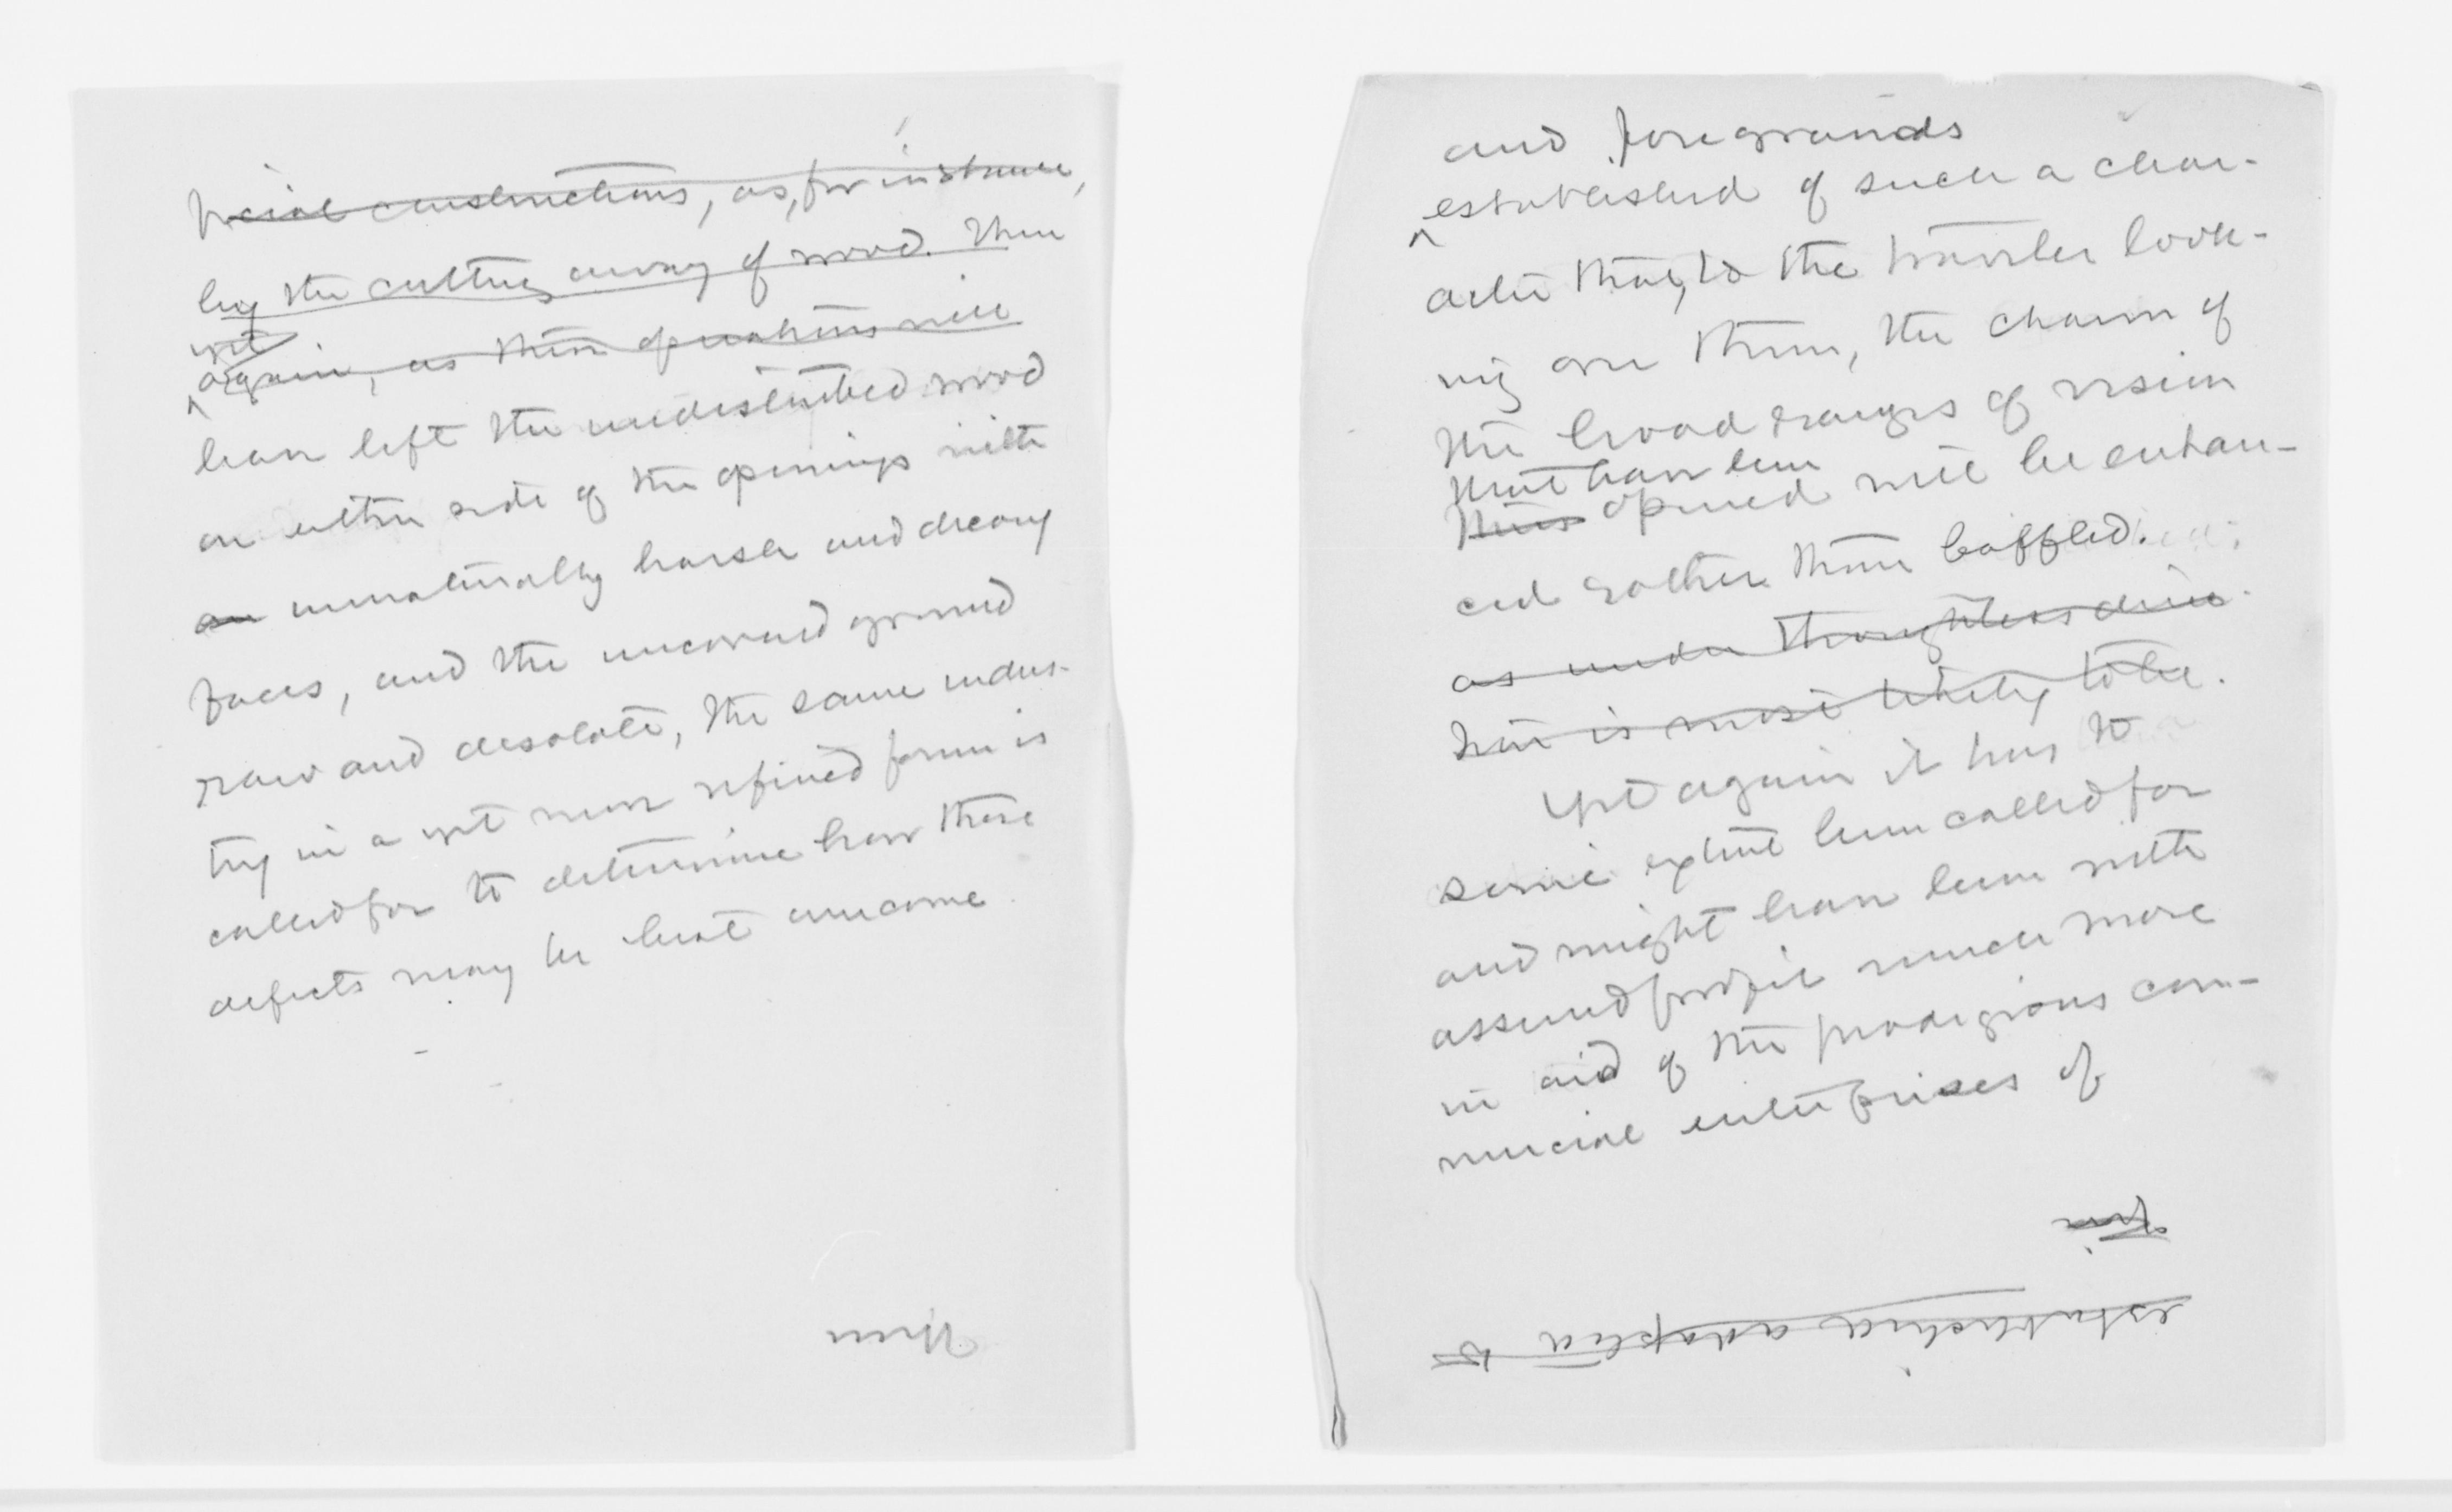 ficial constructions, as, for instance,
by the cutting away of wood. Then
yet
again, as these operations will
have left the undisturbed wood
on either side of the openings with
an unnaturally harsh and dreary
faces, and the uncovered ground
raw and desolate, the same indus-
try in a yet more refined form is
called for to determine how these
defects may be best overcome.
and foregrounds
established of such a char-
acter that, to the traveler look-
ing over them, the charm of
the broad ranges of vision
that have been
thus opened will be enhan-
ced rather than baffled.
as under thoughtless direc
tion is most likely to be.
Yet again it has to
some extent been called for
and might have been with
assured profit much more
in aid of the prodigious com-
mercial enterprises of
established adapted to